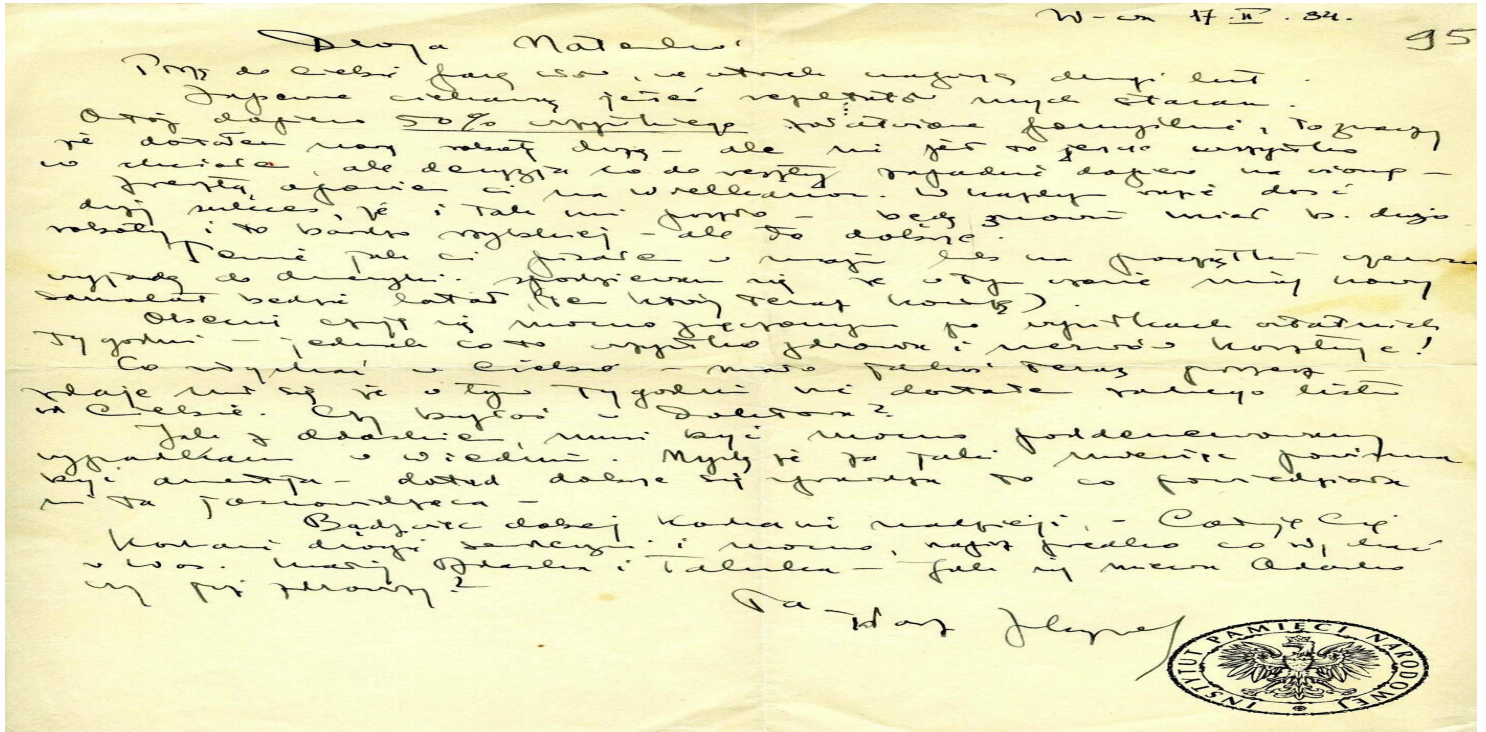 W-wa 17.II.34.
95
Droga Mateńko!
Piszę do Ciebie parę słów, we wtorek napiszę drugi list.
Zapewne ciekawą jesteś rezultatów mych starań.
Otóż dopiero 50% wszystkiego załatwione pomyślnie, to znaczy
że dostałem nową robotę dużą – ale nie jest to jeszcze wszystko
co chciałem, ale decyzja co do reszty zapadnie dopiero na wiosnę –
zresztą opowiem Ci na Wielkanoc. W każdym razie dość
duży sukces, że i tak mi poszło – będę znowu miał b. dużo
roboty i to bardzo szybkiej – ale to dobrze.
Teraz jak Ci pisałem w maju lub na początku czerwca
wyjadę do Ameryki. Spodziewam się że w tym czasie mój nowy
samolot będzie latał, (ten który teraz kończę).
Obecnie czuję się mocno zmęczonym po wysiłkach ostatnich
tygodni – jednak co to wszystko zdrowia i nerwów kosztuje!
Co słychać u Ciebie – mało jakoś teraz piszesz –
zdaje mi się że w tym tygodniu nie dostałem żadnego listu
od Ciebie. Czy byłaś u Doktora?
Jak z Adasiem, musi być mocno poddenerwowany
wypadkami w Wiedniu. Myślę że za jaki miesiąc powinna
być amnestja – dotąd dobrze się sprawdza to co powiedziała
mi ta jasnowidząca –
Bądźcie dobrej Kochani nadzieji, – Całuję Cię
Kochanie drogie serdecznie i mocno, napisz prędko co słychać
u Was. i Talinka – Jak się miewa Adaśko
czy już zdrowy?
Twój
INSTYTUT PAMIĘCI NARODOWEJ